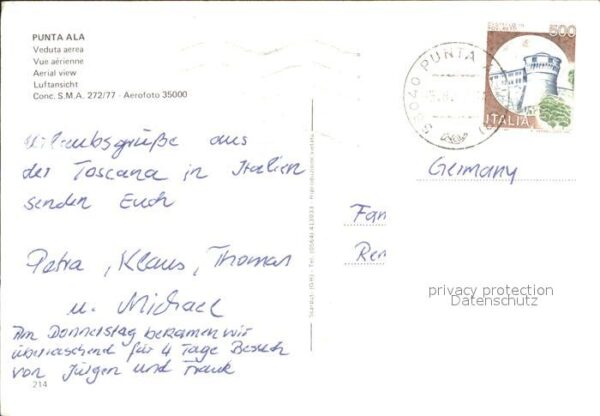 PUNTA ALA
Veduta aerea
Vue aérienne
Aerial view
Luftansicht
Conc. S.M.A. 272/77 - Aerofoto 35000
500
ITALIA
58040 PUNTA
Germany
Urlaubsgrüße aus
der Toscana in Italien
senden Euch
Fam
Ren
Petra, Klaus, Thomas
u. Michael
Am Donnerstag bekamen wir
überraschend für 4 Tage Besuch
von Jürgen und Frank
214
privacy protection
Datenschutz